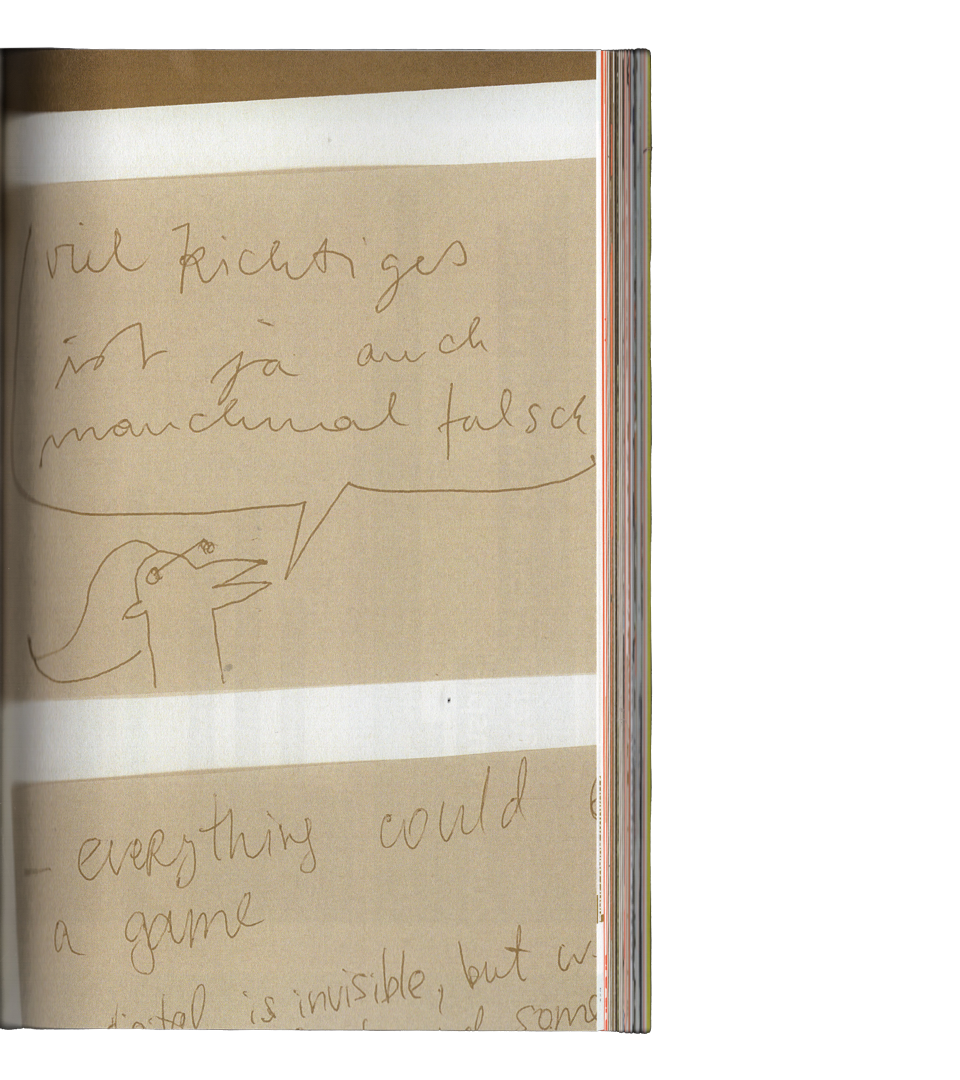 viel Richtiges
ist ja auch
manchmal falsch
- everything could
a game
digital is invisible, but